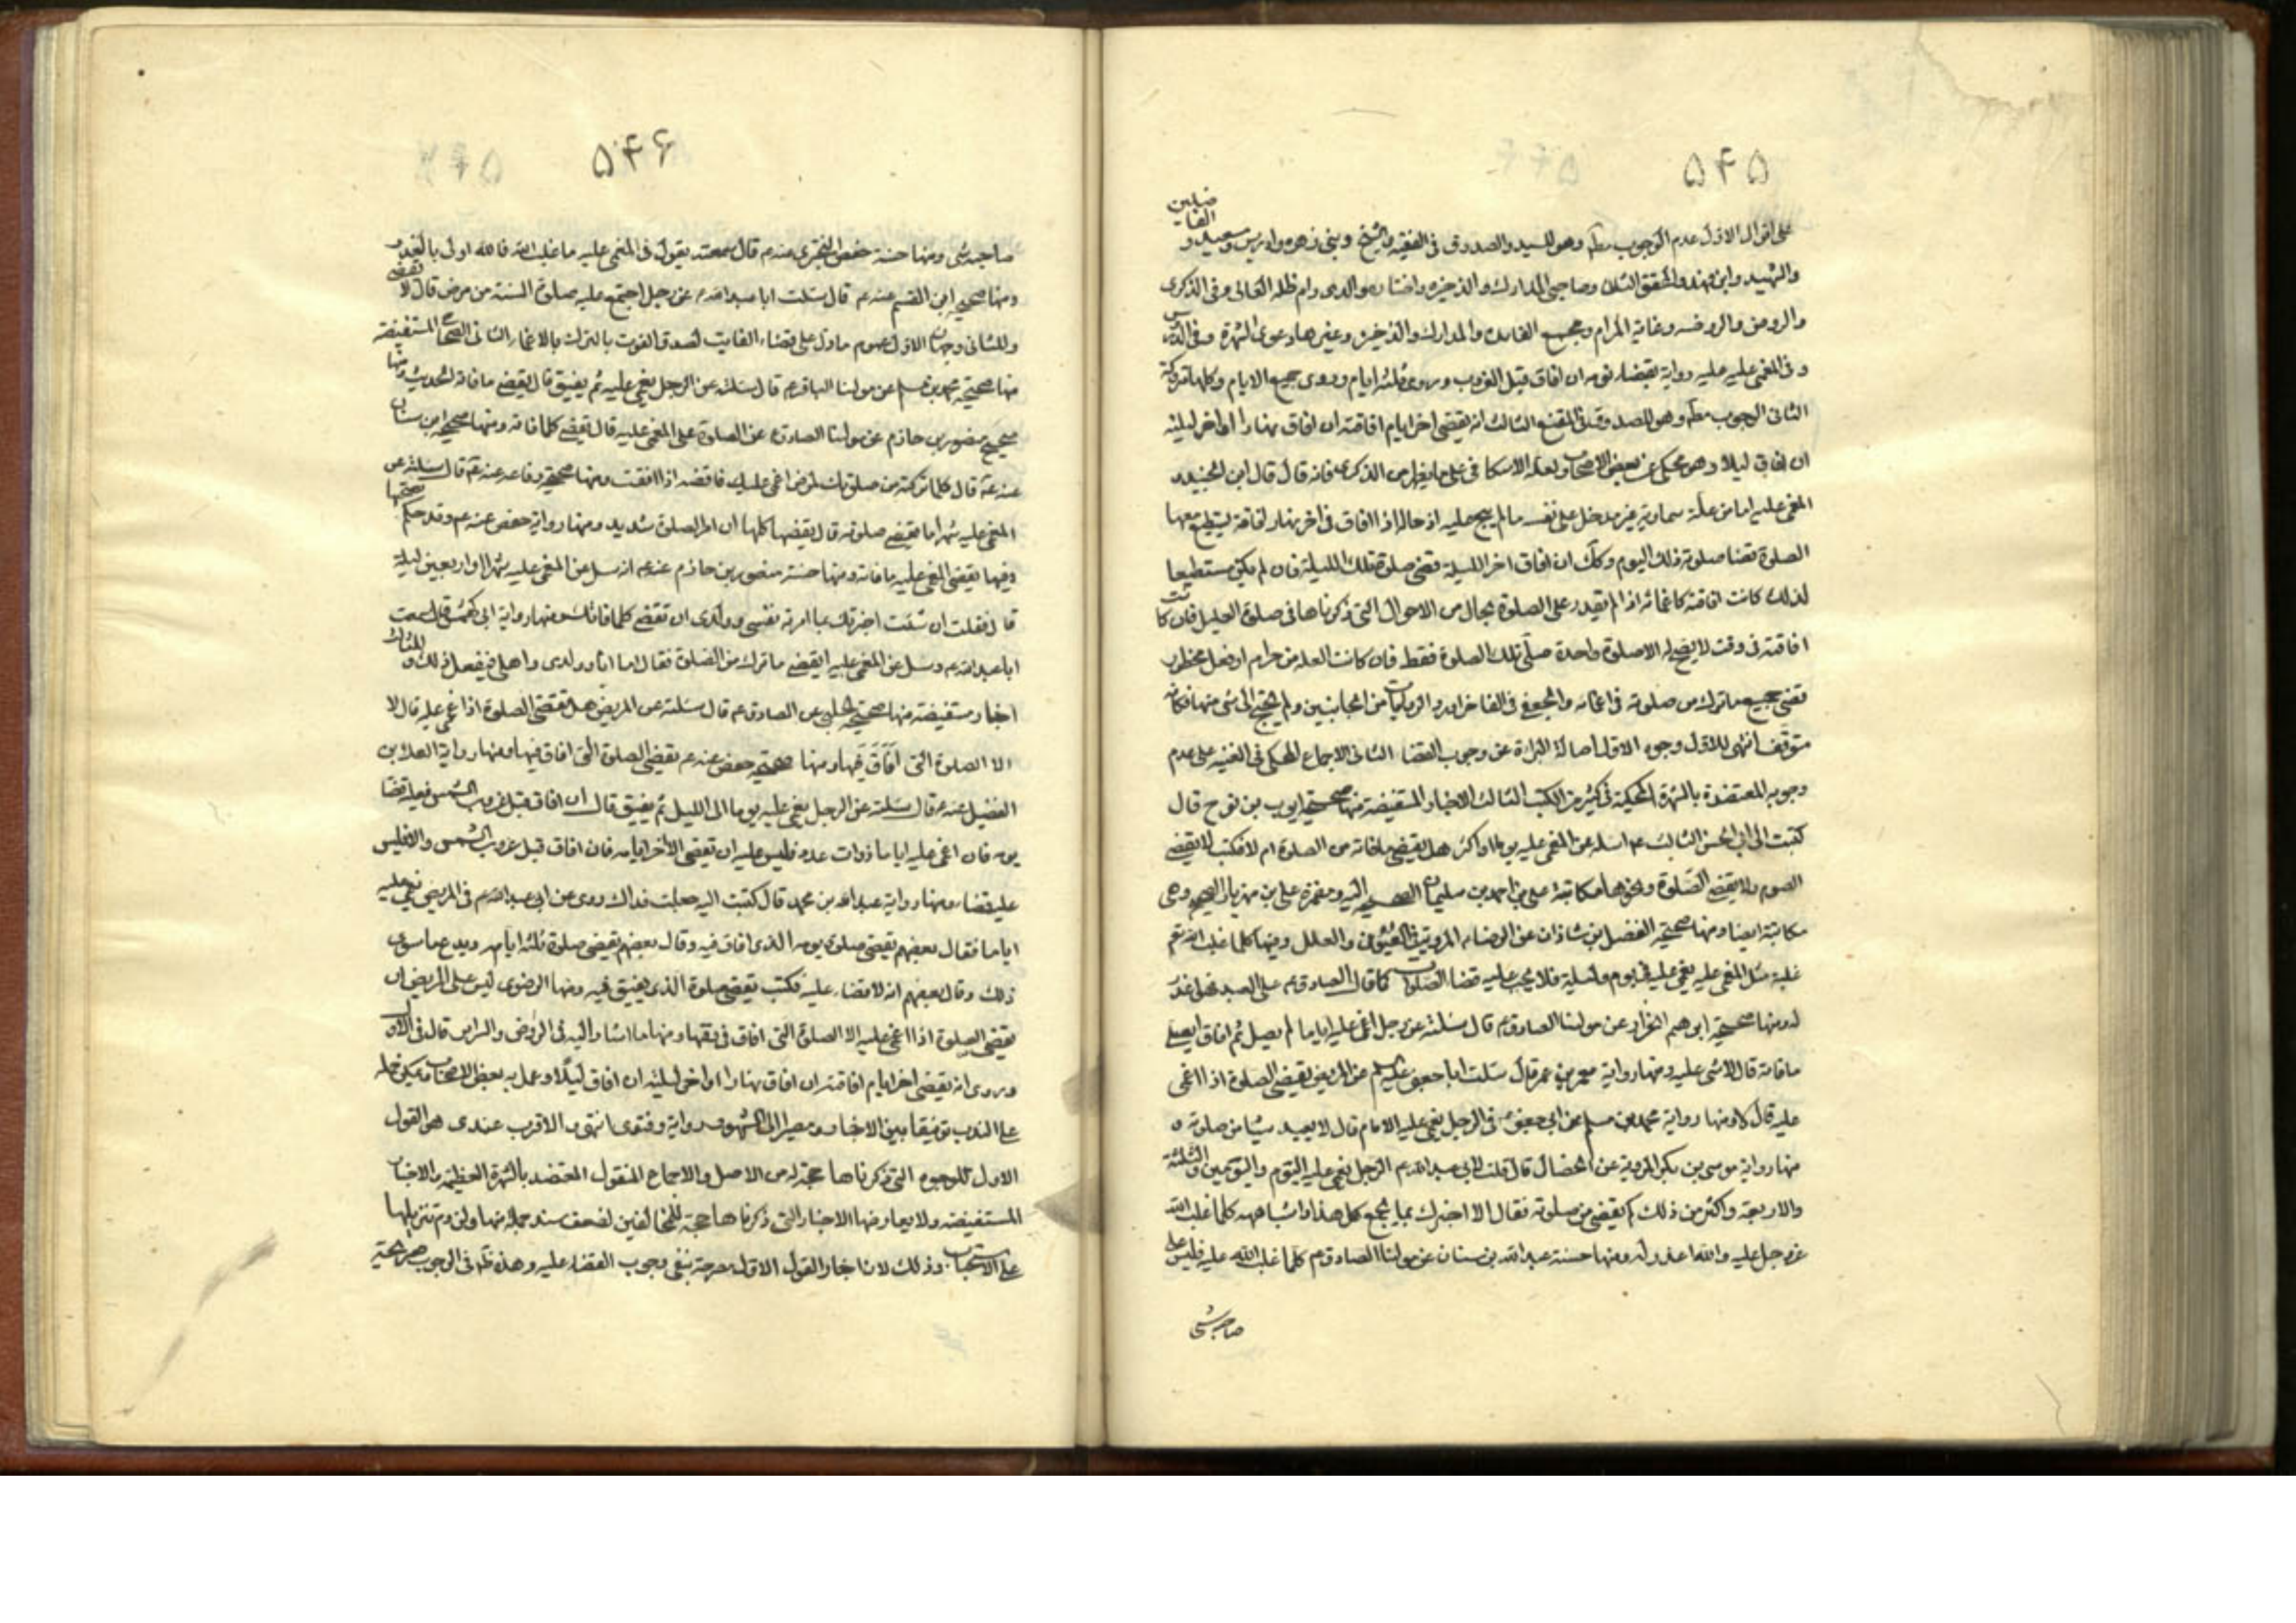 ۵۴۵
على اقوال الاول عدم الوجوب مط وهو للسيد والصدوق فى الفقيه والشيخ وبنى زهره وادريس وسعيد و الفاضلين
والشهيد وابن فهد والمحقق الثانى وصاحبى المدارك والذخيره واختاره والدى دام ظله العالى وفى الذكرى
والروض والروضه وغاية المرام ومجمع الفايده والمدارك والذخيره وغيرها دعوى الشهرة وفى الدروس
وفى المغمى عليه رواية بقضاء يومه ان افاق قبل الغروب وروى ثلثه ايام وروى جميع الايام وكلها متروكة
الثانى الوجوب مط وهو للصدوق فى المقنع الثالث انه يقضى اخر ايام افاقته ان افاق نهارا او اخر ليلته
ان افاق ليلا وهو محكى عن بعض الاصحاب ولعله الاسكافى على ما يظهر من الذكرى فانه قال قال ابن الجنيد
المغمى عليه اما من علة سماوية غير مدخل على نفسه ما لم يبح عليه ادخاله اذا افاق فى اخر نهار افاقة يستطيع معها
الصلوة قضا صلوة ذلك اليوم وكك ان افاق اخر الليلة قضى صلوة تلك الليلة فان لم يكن مستطيعا
لذلك كانت افاقته كاغمائه اذا لم يقدر على الصلوة بحال من الاحوال التى ذكرناها فى صلوة العليل فان كانت
افاقته فى وقت لا يصح له الا صلوة واحدة صلى تلك الصلوة فقط فان كانت العله من حرام او فعل محظور
قضى جميع ما ترك من صلوته فى اغمائه والجعفى فى الفاخر اورد الروايات من الجانبين ولم يجنح الى شى منها فكانه
متوقف انتهى للاول وجوه الاول اصالة البرائة عن وجوب القضا الثانى الاجماع المحكى فى الغنيه على عدم
وجوبه المعتضدة بالشهرة المحكية فى كثير من الكتب الثالث الاخبار المستفيضة منها صحيحة ايوب بن نوح قال
كتبت الى ابى الحسن الثالث ع اسئله عن المغمى عليه يوما او اكثر هل يقضى ما فاته من الصلوة ام لا فكتب لا يقضى
الصوم ولا يقضى الصلوة ونحوها مكاتبة على بن احمد بن سليمان الصحيح اليه ومضمرة على بن مهزيار الصحيح وهى
مكاتبة ايضا ومنها صحيحة الفضل بن شاذان عن الرضا ع المروية فى العيون والعلل وفيها كلما غلب الله تع
عليه مثل المغمى عليه يغمى عليه فى يوم وليلة فلا يجب عليه قضا الصلوات كما قال الصادق ع
له ومنها صحيحة ابرهيم الخزاز عن مولينا الصادق ع قال سئلته عن رجل اغمى عليه اياما لم يصل ثم افاق ايصلى
ما فاته قال لا شى عليه ومنها رواية معمر بن عمر قال سئلت ابا جعفر عليه السلم عن المريض يقضى الصلوة اذا اغمى
عليه قال لا ومنها رواية محمد بن مسلم عن ابى جعفر ع فى الرجل يغمى عليه الايام قال لا يعيد شيئا من صلوته و
منها رواية موسى بن بكر المروية عن الخصال قال قلت لابى عبد الله ع الرجل يغمى عليه اليوم واليومين والثلثة
والاربعة واكثر من ذلك كم يقضى من صلوته فقال الا اخبرك بما يجمع كل هذا واشباهه كلما غلب الله
عز وجل عليه والله اعذر له ومنها حسنة عبد الله بن سنان عن مولينا الصادق ع كلما غلب الله عليه فليس على
صاحبه شى
۵۴۶
صاحبه شى ومنها حسنة حفص البخترى عنه ع قال سمعته يقول فى المغمى عليه ما غلب الله فالله اولى بالعذر
ومنها صحيحة ابن القسم عنه ع قال سئلت ابا عبد الله ع عن رجل اجتمع عليه صلوة السنة من مرض قال لا يقضى
وللثانى وجهان الاول عموم ما دل على قضاء الفايت لصدق الفوت بالترك بالاغماء الثانى الصحاح المستفيضة
منها صحيحة محمد بن مسلم عن مولينا الباقر ع قال سئلته عن الرجل يغمى عليه ثم يفيق قال يقضى ما فاته الحديث ومنها
صحيح منصور بن حازم عن مولينا الصادق ع عن الصلوة على المغمى عليه قال يقضى كلما فاته ومنها صحيحة ابن سنان
عنه ع قال كلما تركته من صلوتك لمرض اغمى عليك فاقضه اذا افقت ومنها صحيحة رفاعه عنه ع قال سئلته عن
المغمى عليه شهرا ما يقضى صلوته قال يقضيها كلها ان امر الصلوة شديد ومنها رواية حفص عنه ع وقد حكم بصحتها
وفيها يقضى المغمى عليه ما فاته ومنها حسنة منصور بن حازم عنه ع انه سئل عن المغمى عليه شهرا او اربعين ليلة
قال فقلت ان شئت اخبرتك بما امر به نفسى وولدى ان تقضى كلما فاتك ومنها رواية ابى كهمش قال سمعت
ابا عبد الله ع وسئل عن المغمى عليه ايقضى ما ترك من الصلوة فقال اما انا وولدى واهلى فنفعل ذلك وللثالث
اخبار مستفيضة منها صحيحة الحلبى عن الصادق ع قال سئلته عن المريض هل يقضى الصلوة اذا غمى عليه قال لا
الا الصلوة التى افاق فيها ومنها صحيحة حفص عنه ع يقضى الصلوة التى افاق فيها ومنها رواية العلا بن
الفضيل عنه ع قال سئلته عن الرجل يغمى عليه يوما الى الليل ثم يفيق قال ان افاق قبل غروب الشمس فعليه قضا
يومه فان اغمى عليه اياما ذوات عدد فليس عليه ان يقضى الا اخر ايامه فان افاق قبل غروب الشمس والا فليس
عليه قضاء ومنها رواية عبد الله بن محمد قال كتبت اليه جعلت فداك روى عن ابى عبد الله ع فى المريض يغمى عليه
اياما فقال بعضهم يقضى صلوة يومه الذى افاق فيه وقال بعضهم يقضى صلوة ثلثه ايام ويدع ما سوى
ذلك وقال بعضهم انه لا قضاء عليه فكتب يقضى صلوة الذى يفيق فيه ومنها الرضوى ليس على المريض ان
يقضى الصلوة اذا اغمى عليه الا الصلوة التى افاق فى وقتها ومنها ما اشار اليه فى الروض والسراير قال فى الاول
وروى انه يقضى اخر ايام افاقته ان افاق نهارا او اخر ليلته ان افاق ليلا وعمل به بعض الاصحاب ويمكن حمله
على الندب توفيقا بين الاخبار ومصيرا الى المشهور رواية وفتوى انتهى والاقرب عندى هو القول
الاول للوجوه التى ذكرناها حجة له من الاصل والاجماع المنقول المعتضد بالشهرة العظيمة والاخبار
المستفيضة ولا يعارضها الاخبار التى ذكرناها حجة للمخالفين لضعف سند جملة منها ولزوم تنزيلها
على الاستحباب وذلك لان اخبار القول الاول صريحة بنفى وجوب القضاء عليه وهذه ظ فى الوجوب صريحة